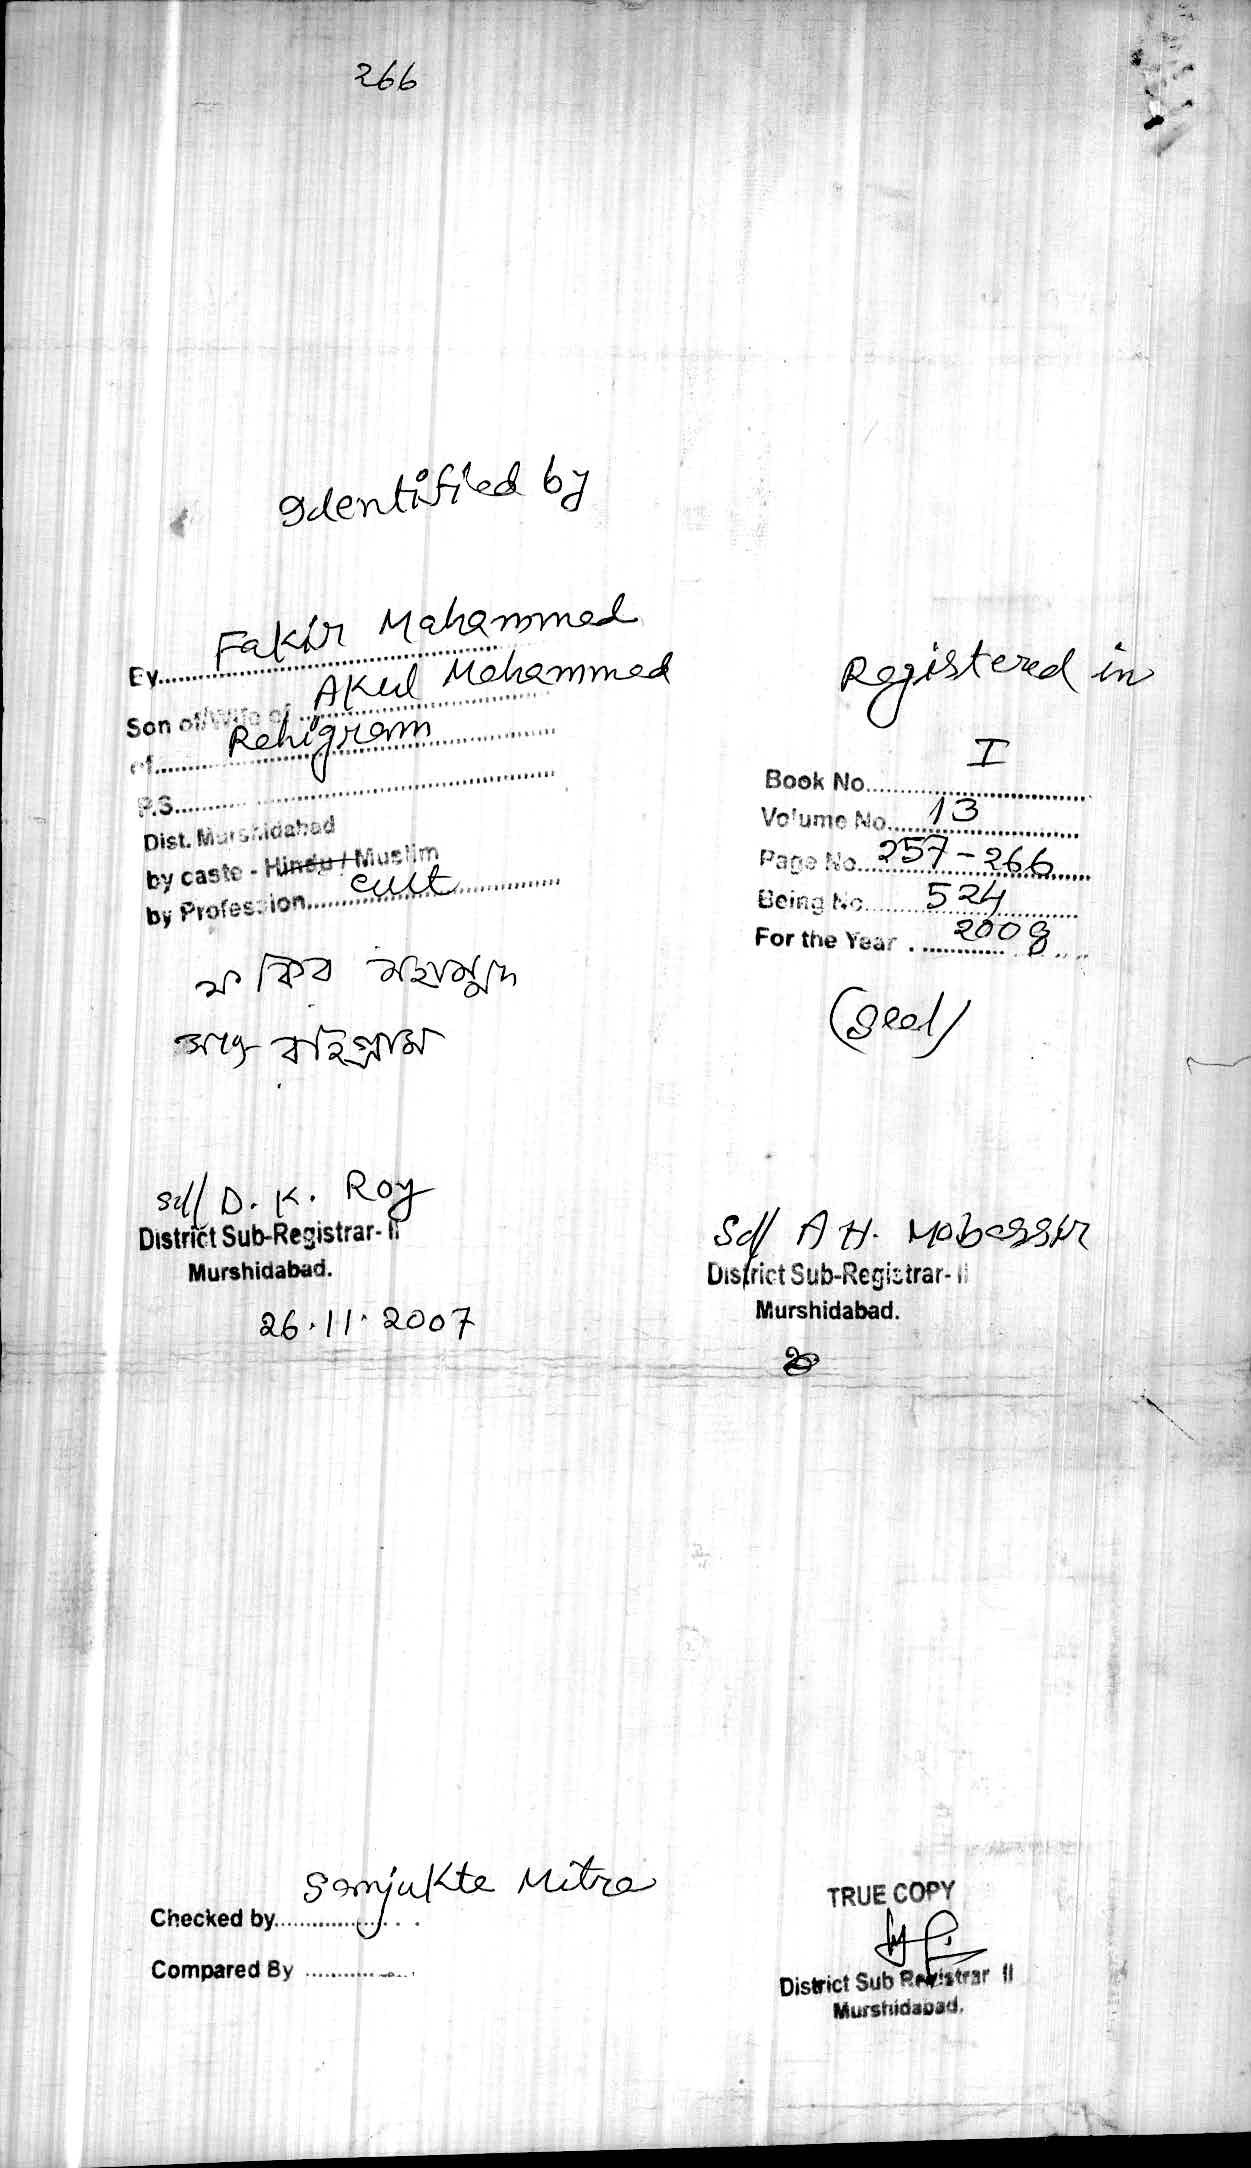 266
Identified by
By Fakir Mahammed
Son of/Wife of Akul Mohammed
of Rehigram
P.S.
Dist. Murshidabad
by caste - Hindu / Muslim
by Profession cult
ফকির মহাম্মদ
সাং রাইগ্রাম
Sd/ D. K. Roy
District Sub-Registrar- II
Murshidabad.
26.11.2007
Registered in
Book No. I
Volume No. 13
Page No. 257-266
Being No. 524
For the Year 2008
(Seal)
Sd/ A H. Mobassir
District Sub-Registrar- II
Murshidabad.
Checked by Samjukta Mitra
Compared By
TRUE COPY
District Sub Registrar II
Murshidabad.